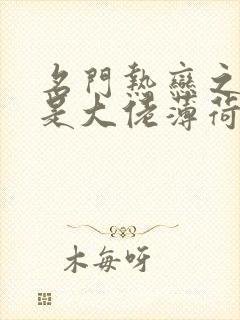 名門熱戀之
是大佬薄荷
木每呀